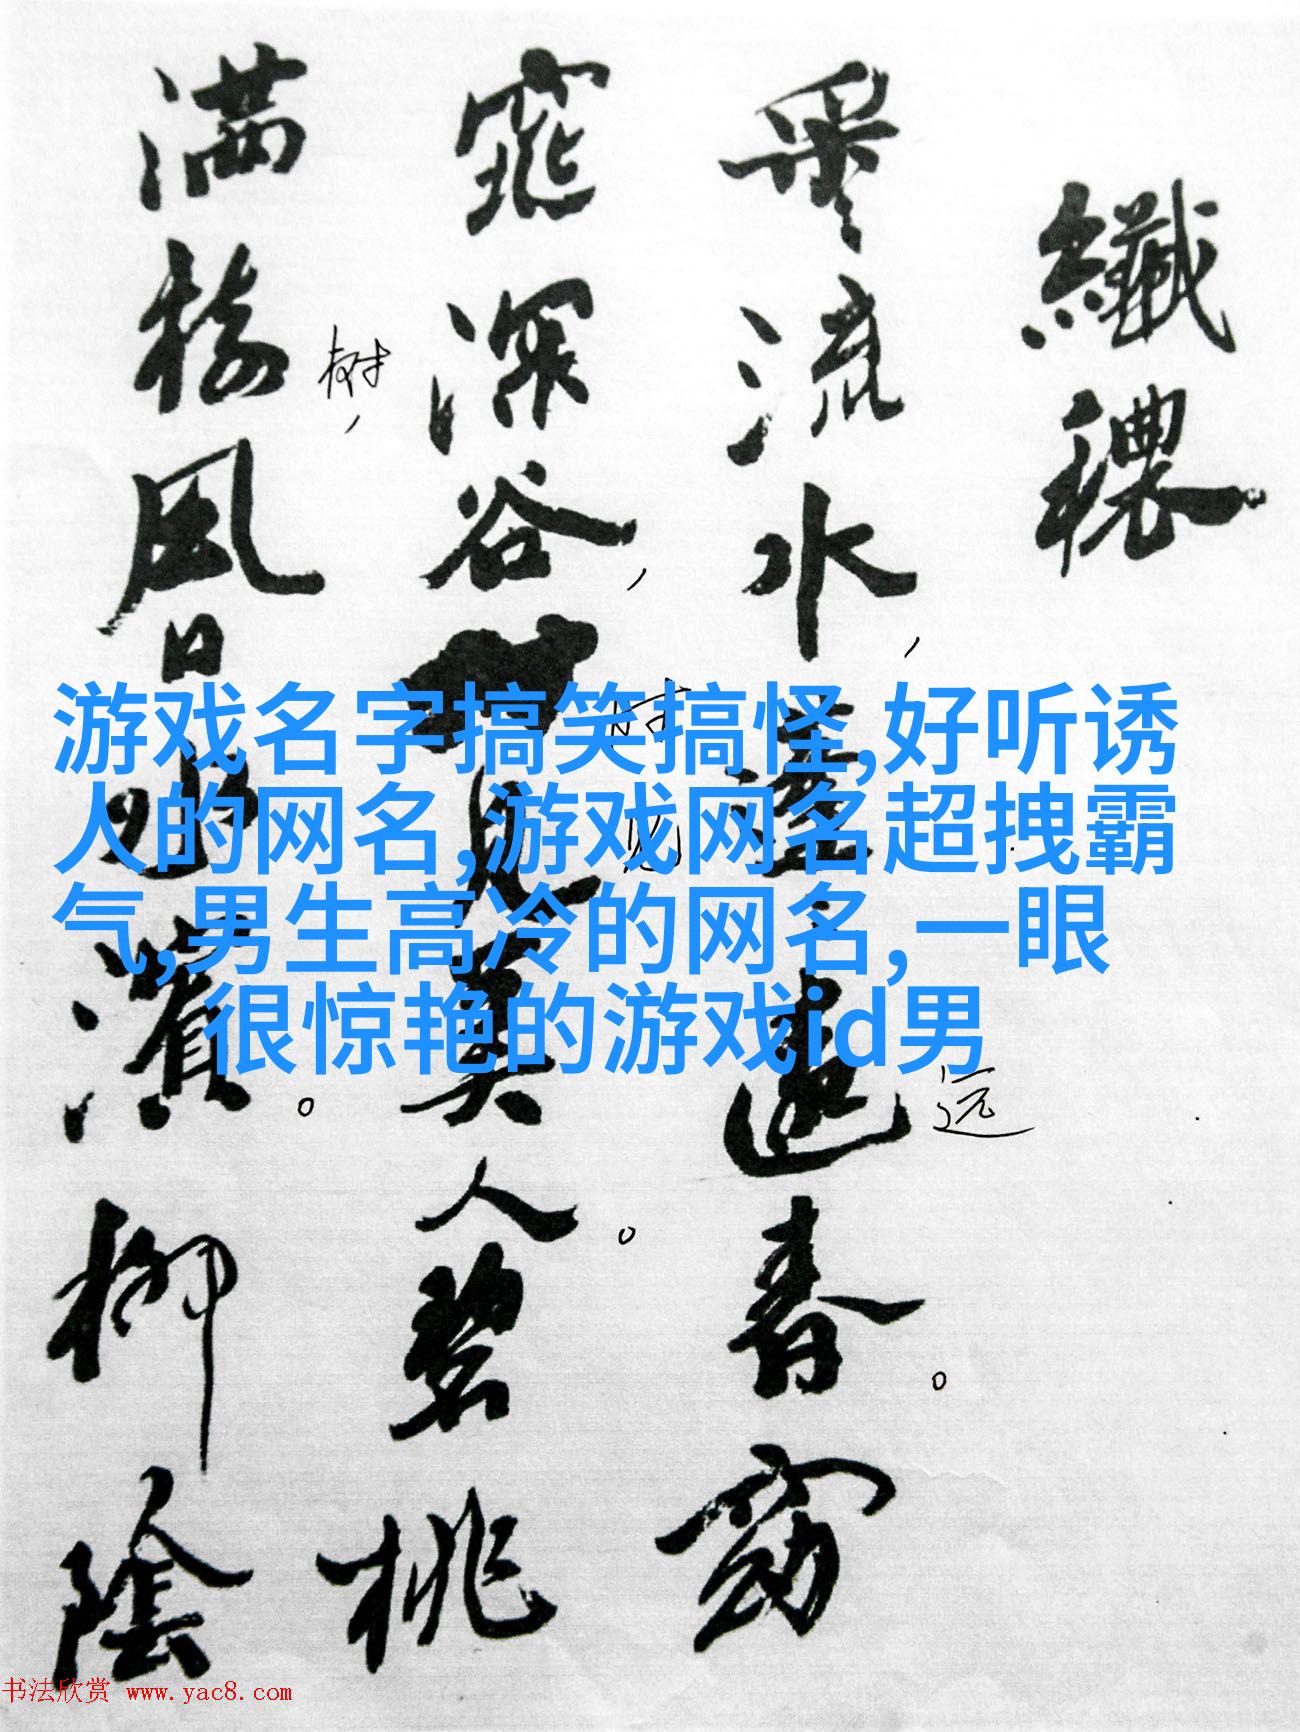 纖穠
采々流水，蓬々遠春。窈
远
窕深谷，見美人。碧桃
树，
满樹風日水濱。柳陰
游戏名字搞笑搞怪,好听诱
人的网名,游戏网名超拽霸
气,男生高冷的网名,一眼
很惊艳的游戏id男
书法欣赏 www.yac8.com